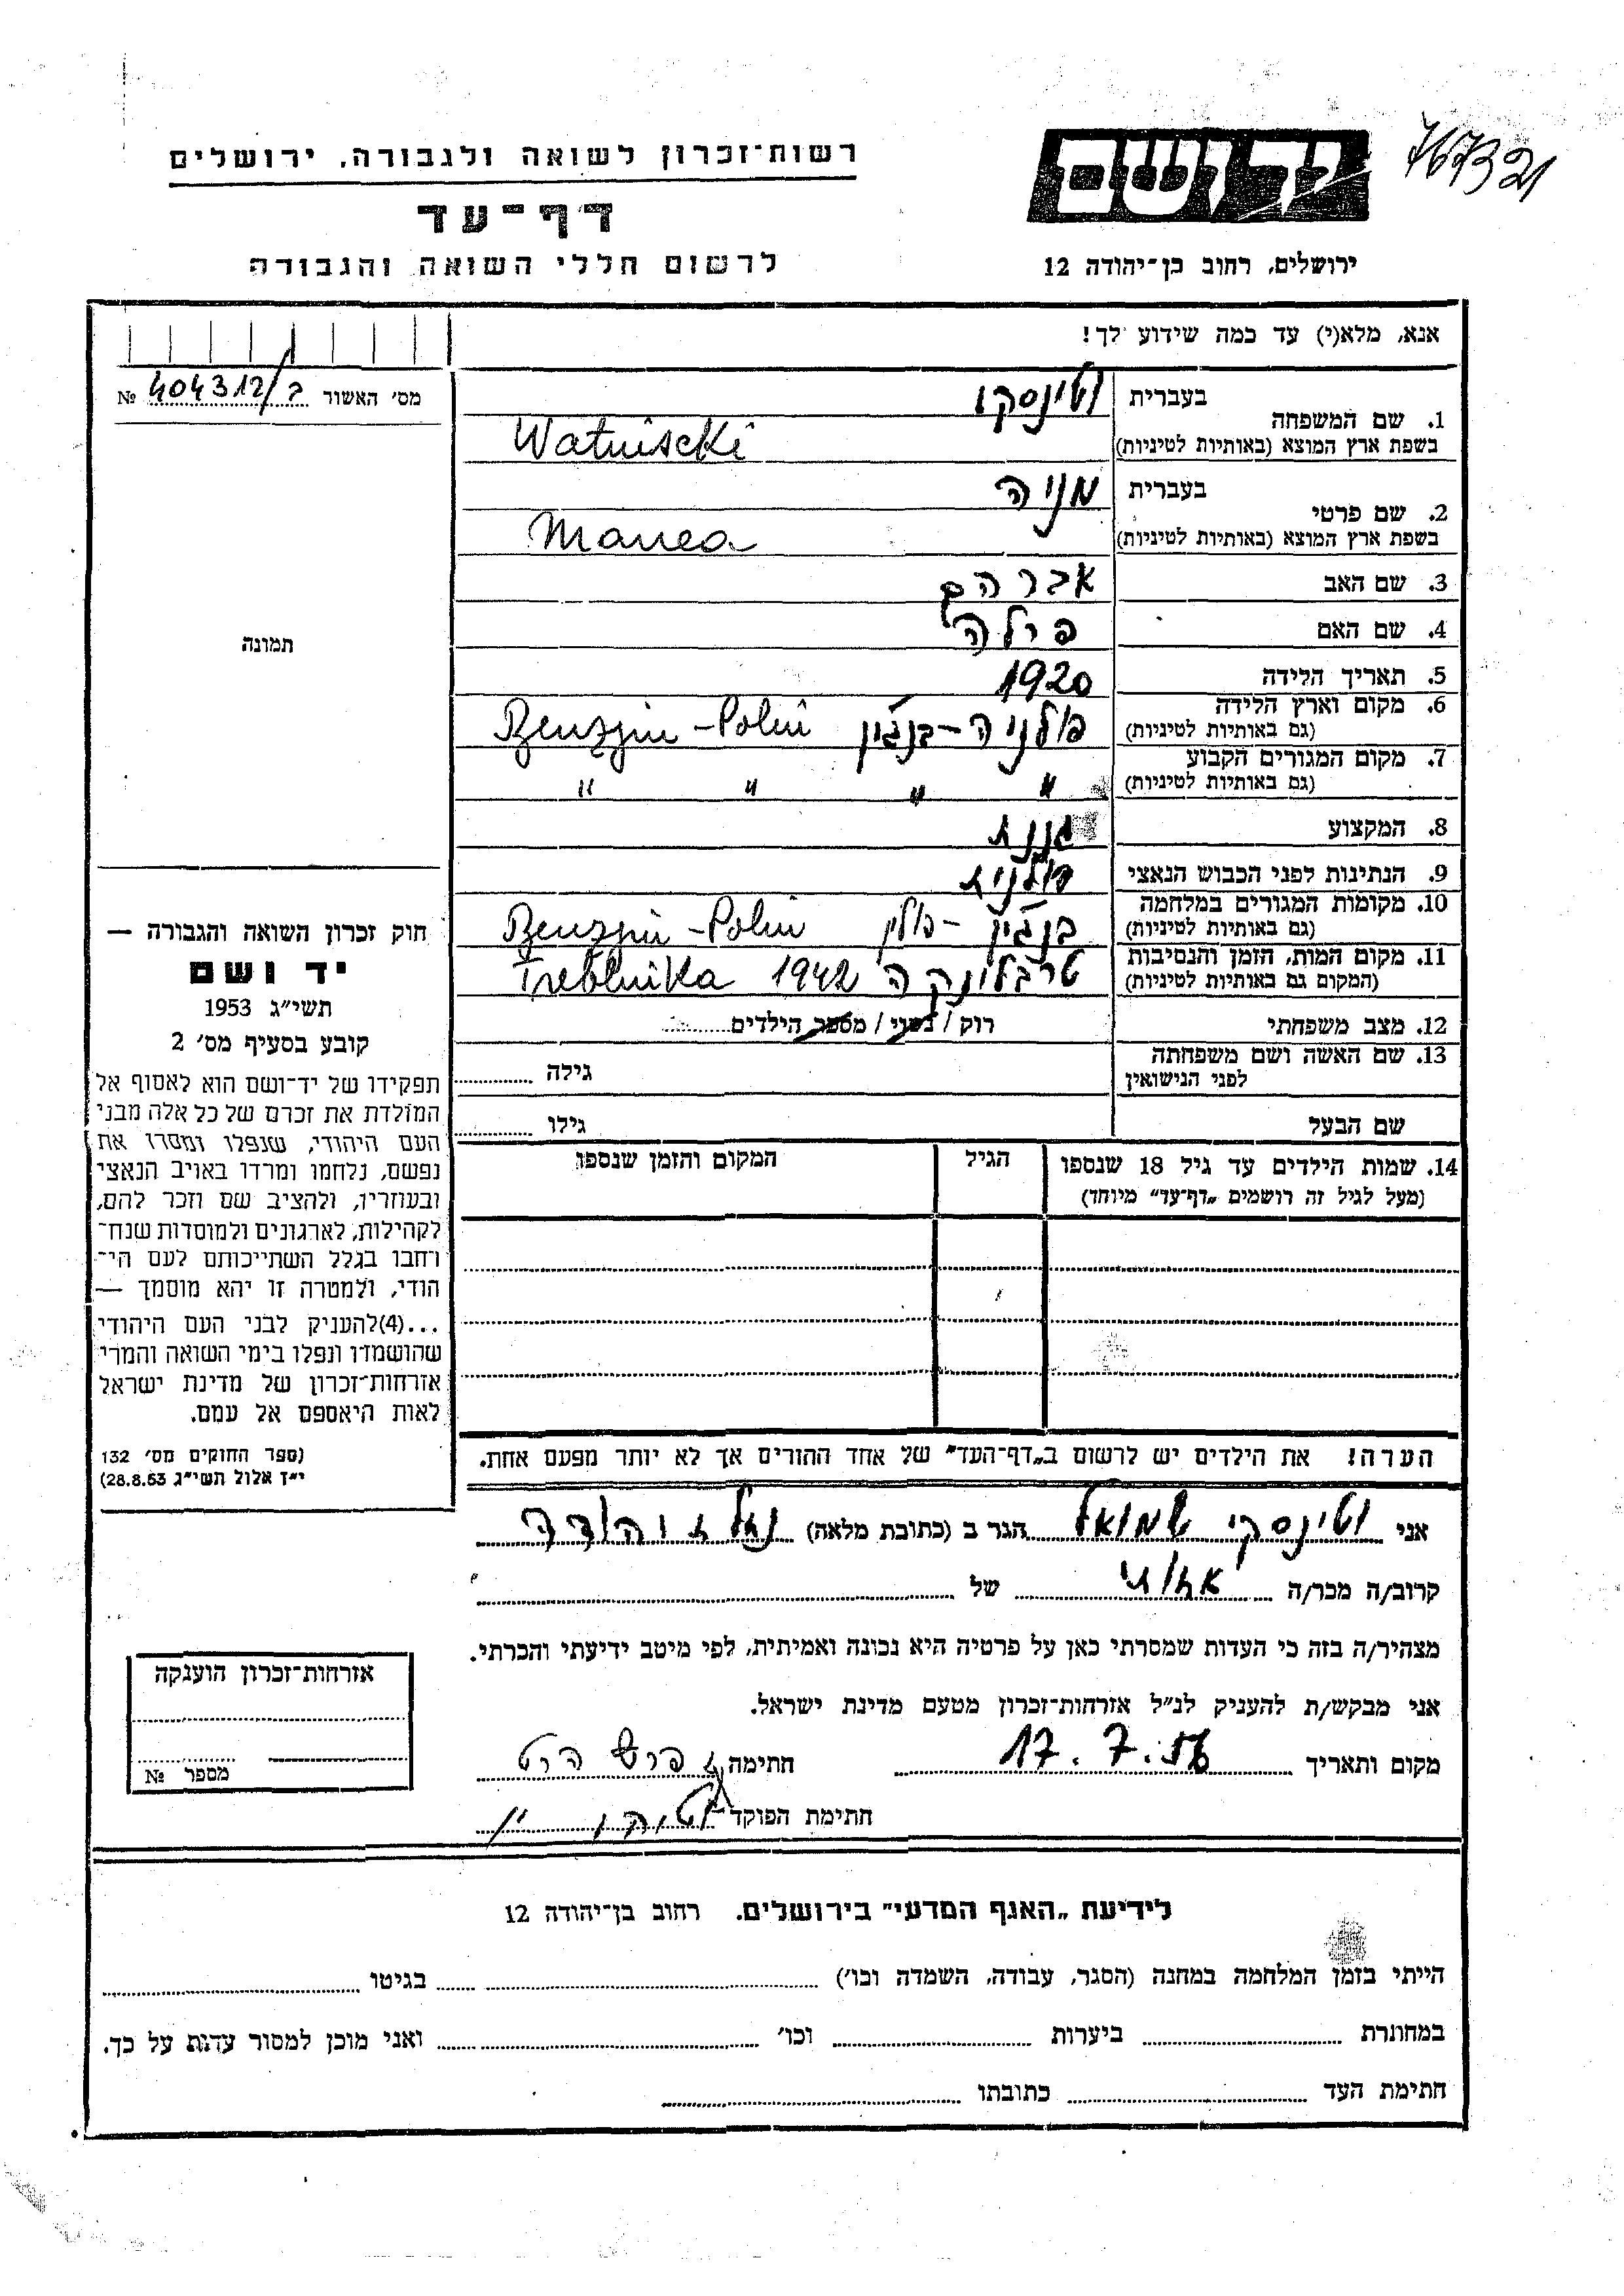 767321
רשות־זכרון לשואה ולגבורה, ירושלים
יד ושם
דף־עד
לרשום חללי השואה והגבורה
ירושלים, רחוב בן־יהודה 12
אנא, מלא(י) עד כמה שידוע לך!
מס׳ האשור 404312/ב №
1. שם המשפחה
בעברית וטינסקי
בשפת ארץ המוצא (באותיות לטיניות) Watniscki
2. שם פרטי
בעברית מניה
בשפת ארץ המוצא (באותיות לטיניות) Manea
3. שם האב אברהם
4. שם האם פילה
5. תאריך הלידה 1920
6. מקום וארץ הלידה (גם באותיות לטיניות) פולניה - בנג'ין Benzjin - Polin
7. מקום המגורים הקבוע (גם באותיות לטיניות) " " " "
8. המקצוע גננת
9. הנתינות לפני הכבוש הנאצי פולנית
10. מקומות המגורים במלחמה (גם באותיות לטיניות) בנג'ין - פולין Benzjin - Polin
11. מקום המות, הזמן והנסיבות (המקום גם באותיות לטיניות) טרבלינקה 1942 Treblnika
12. מצב משפחתי רוק / נשוי / מספר הילדים
13. שם האשה ושם משפחתה לפני הנישואין גילה
שם הבעל גילו
14. שמות הילדים עד גיל 18 שנספו
(מעל לגיל זה רושמים „דף־עד״ מיוחד)
הגיל
המקום והזמן שנספו
תמונה
חוק זכרון השואה והגבורה —
יד ושם
תשי״ג 1953
קובע בסעיף מס׳ 2
תפקידו של יד־ושם הוא לאסוף אל
המולדת את זכרם של כל אלה מבני
העם היהודי, שנפלו ומסרו את
נפשם, נלחמו ומרדו באויב הנאצי
ובעוזריו, ולהציב שם וזכר להם,
לקהילות, לארגונים ולמוסדות שנח־
רחבו בגלל השתייכותם לעם הי־
הודי, ולמטרה זו יהא מוסמך —
...(4)להעניק לבני העם היהודי
שהושמדו ונפלו בימי השואה והמרי
אזרחות־זכרון של מדינת ישראל
לאות היאספם אל עמם.
(ספר החוקים מס׳ 132
י״ד אלול תשי״ג 28.8.53)
הערה! את הילדים יש לרשום ב„דף־העד״ של אחד ההורים אך לא יותר מפעם אחת.
אני וטינסקי שמואל הגר ב (כתובת מלאה) נחלת יהודה
קרוב/ה מכר/ה אחותי של
מצהיר/ה בזה כי העדות שמסרתי כאן על פרטיה היא נכונה ואמיתית, לפי מיטב ידיעתי והכרתי.
אני מבקש/ת להעניק לנ״ל אזרחות־זכרון מטעם מדינת ישראל.
מקום ותאריך 17.7.56 חתימה
חתימת הפוקד
אזרחות־זכרון הוענקה
מספר №
לידיעת „האגף המדעי״ בירושלים. רחוב בן־יהודה 12
הייתי בזמן המלחמה במחנה (הסגר, עבודה, השמדה וכו׳) בגיטו
במחתרת ביערות וכו׳ ואני מוכן למסור עדות על כך.
חתימת העד כתובתו